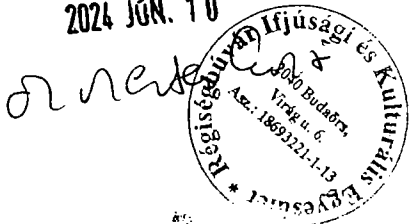 2024 JÚN. 10
Régiségbúvár Ifjúsági és Kulturális Egyesület *
2040 Budaörs,
Virág u. 6.
Asz.: 18693221-1-13